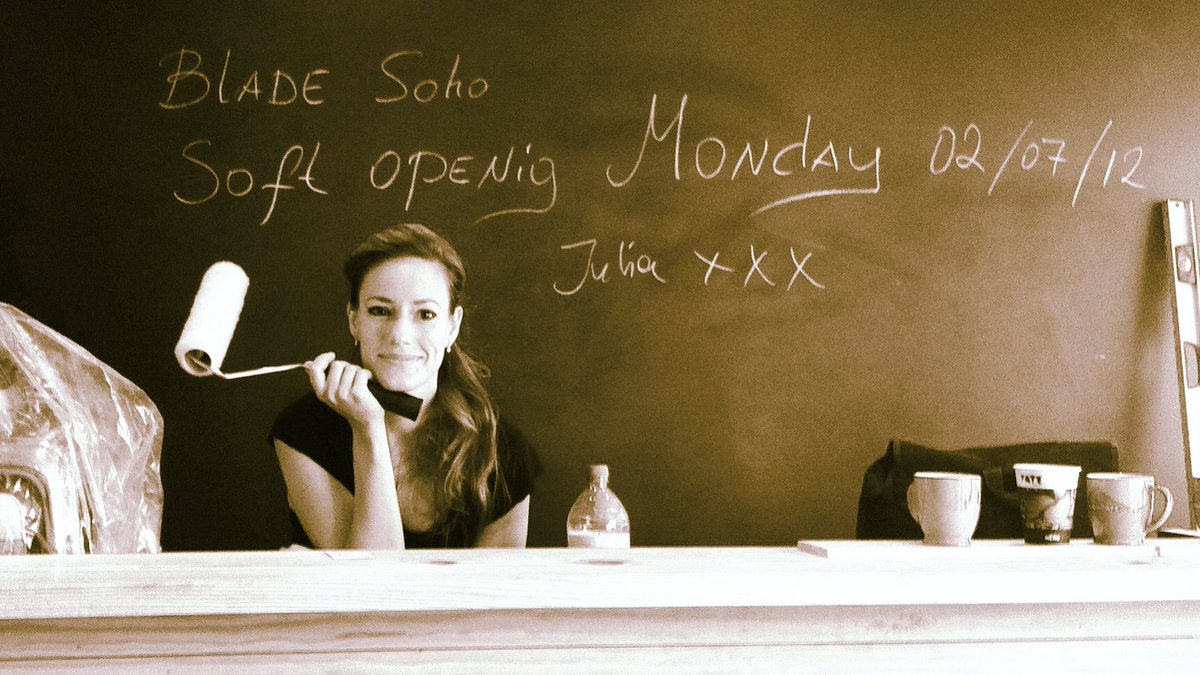 BLADE Soho
Soft OPENig Monday 02/07/12
Julia xxx
TATE